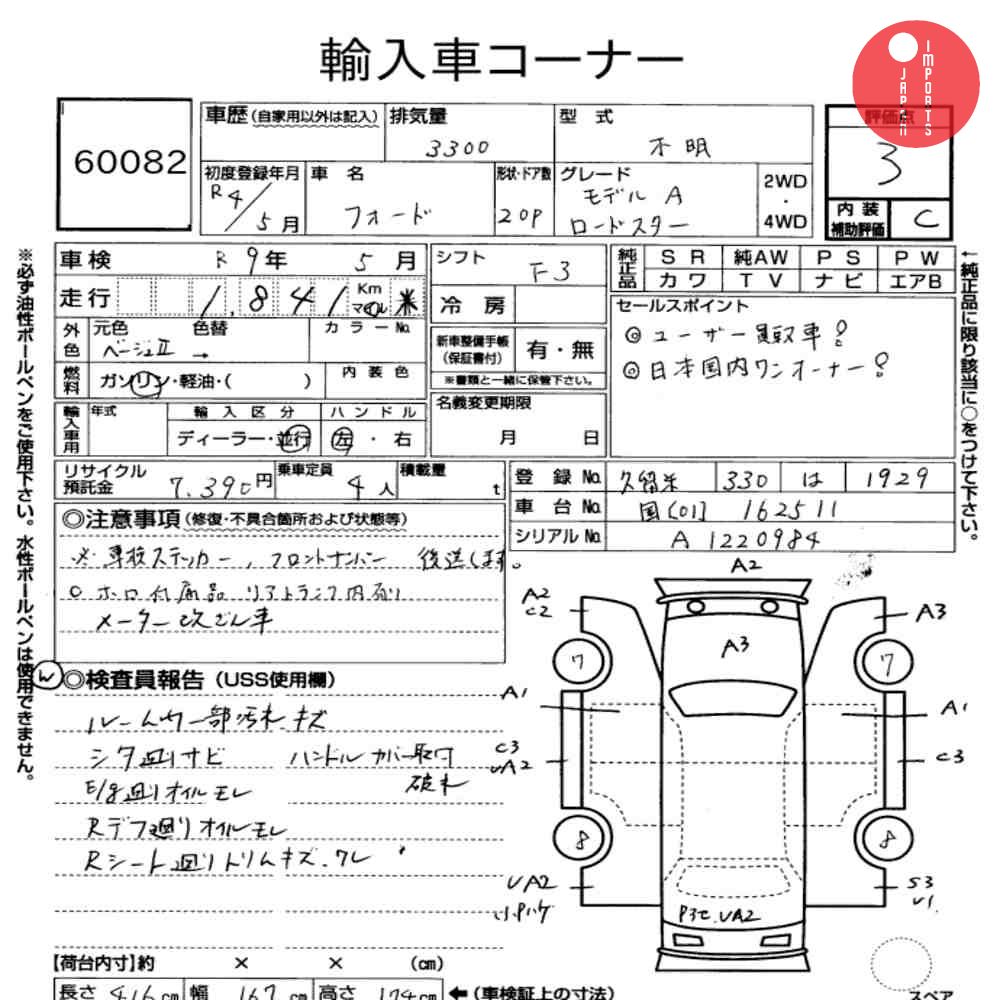 輸入車コーナー
JAPAN IMPORTS
60082
車歴(自家用以外は記入)
排気量
3300
型 式
不明
評価点
3
内装補助評価
C
初度登録年月
R4/5月
車 名
フォード
形状・ドア数
2OP
グレード
モデル A
ロードスター
2WD
・
4WD
車検
R 9年 5月
シフト
F3
純正品
S R
純AW
P S
P W
カワ
T V
ナビ
エアB
走行
1,841
Km
マイル
冷房
セールスポイント
◎ユーザー買取車!
◎日本国内ワンオーナー!
外色
元色
色替
カラーNo.
ベージュII →
新車整備手帳
(保証書付)
有・無
※書類と一緒に保管下さい。
燃料
ガソリン・軽油・( )
内装色
名義変更期限
月 日
輸入車用
年式
輸入区分
ディーラー・並行
ハンドル
左・右
リサイクル預託金
7,390円
乗車定員
4人
積載量
t
登録No.
久留米 330 は 1929
車台No.
国[01] 162511
シリアルNo.
A 1220984
◎注意事項(修復・不具合箇所および状態等)
※ 車検ステッカー、フロントナンバー 後送します。
○ ホロ付属品 リアトランク内有り
メーター改ざん車
W
◎検査員報告(USS使用欄)
ルーム内一部汚れ キズ
シタ廻りサビ ハンドルカバー取付
破れ
E/g廻りオイルモレ
Rデフ廻りオイルモレ
Rシート廻りトリムキズ、ワレ
A2
A2
C2
A3
A3
7
7
A1
A1
C3
UA2
C3
8
8
UA2
S3
U1
P3セ UA2
【荷台内寸】約 × × (cm)
長さ 416cm 幅 167cm 高さ 174cm
←(車検証上の寸法)
スペア
※必ず油性ボールペンをご使用下さい。水性ボールペンは使用できません。
←純正品に限り該当に○をつけて下さい。